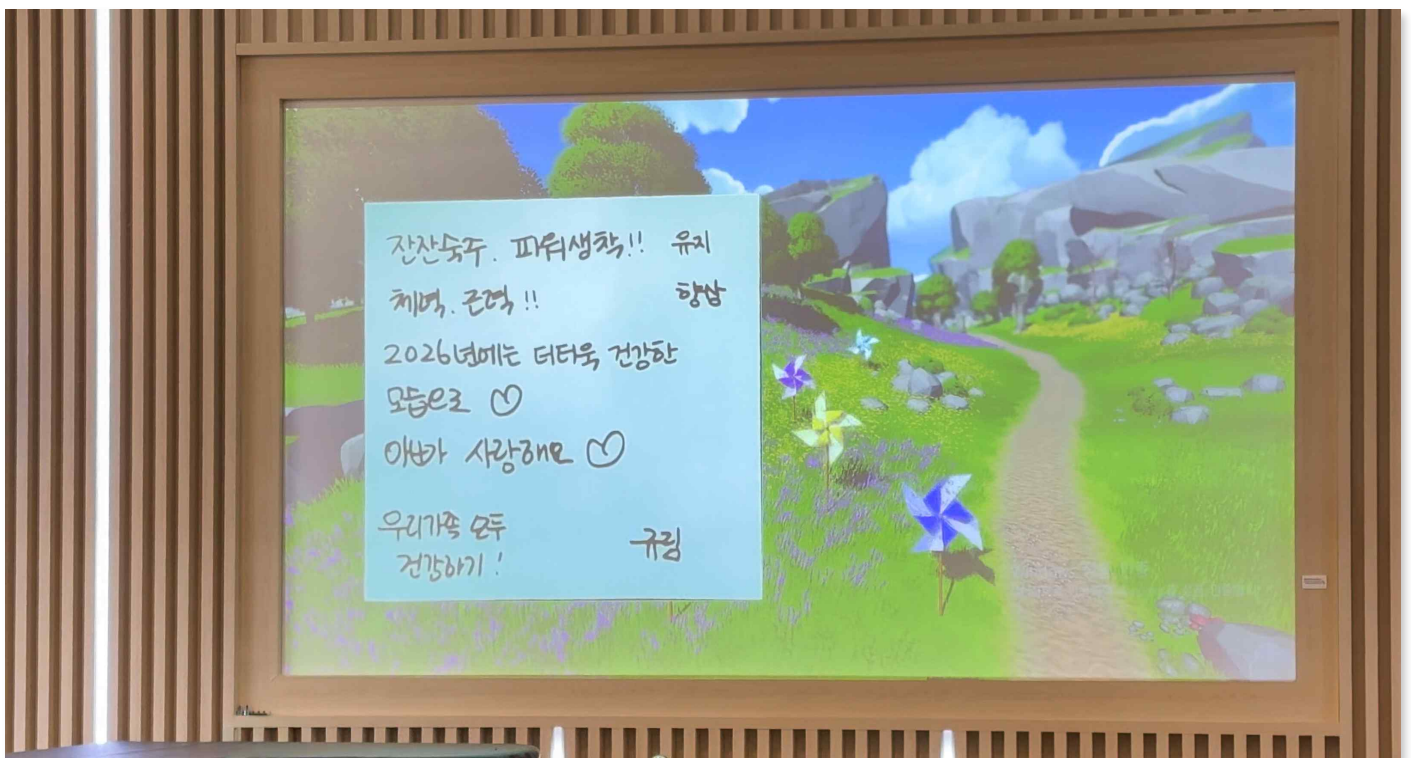 잔잔숙주. 파워생착!! 유지
체력. 근력!! 향상
2026년에는 더터욱 건강한
모습으로 ♡
아빠가 사랑해요 ♡
우리가족 모두
건강하기! 규림